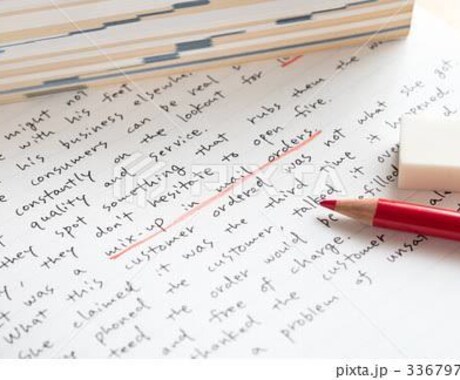 might not feel
with his business elsewhe
his consumers can be real
constantly on the lookout for
quality and service.
they spot something that rubs them the
they don't hesitate to open fire.
a mix-up in orders
was a customer ordered was not what she got
What this it was the third time it happened
she claimed the customer, talked it over
phoned the order would be refilled
ted and free of charge.
thanked the customer
a problem of unsa
PIXTA
336797